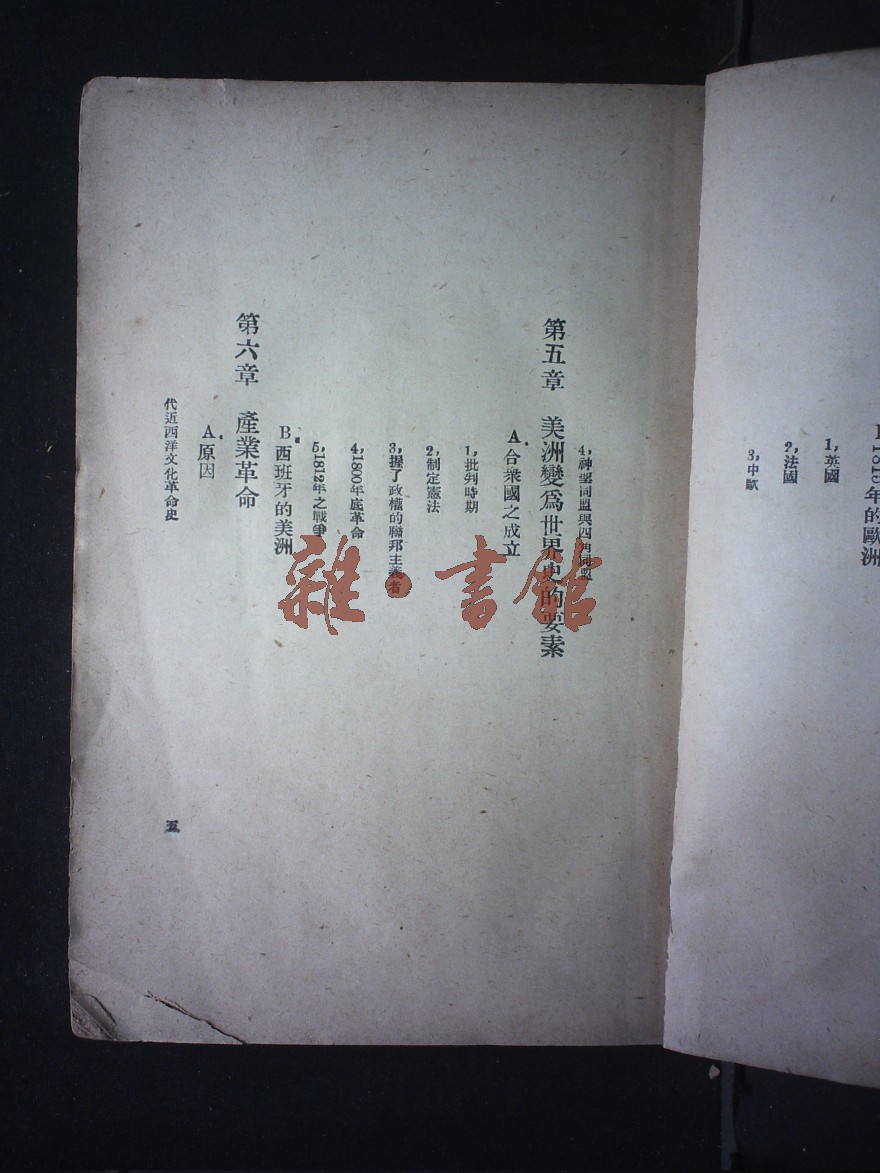 1815年的歐洲
1,英國
2,法國
3,中歐
4,神聖同盟與四角同盟
第五章 美洲變爲世界史的要素
A.合衆國之成立
1,批判時期
2,制定憲法
3,握了政權的聯邦主義者
4,1800年底革命
5,1812年之戰爭
B.西班牙的美洲
第六章 產業革命
A.原因
代近西洋文化革命史
五
雜·書館